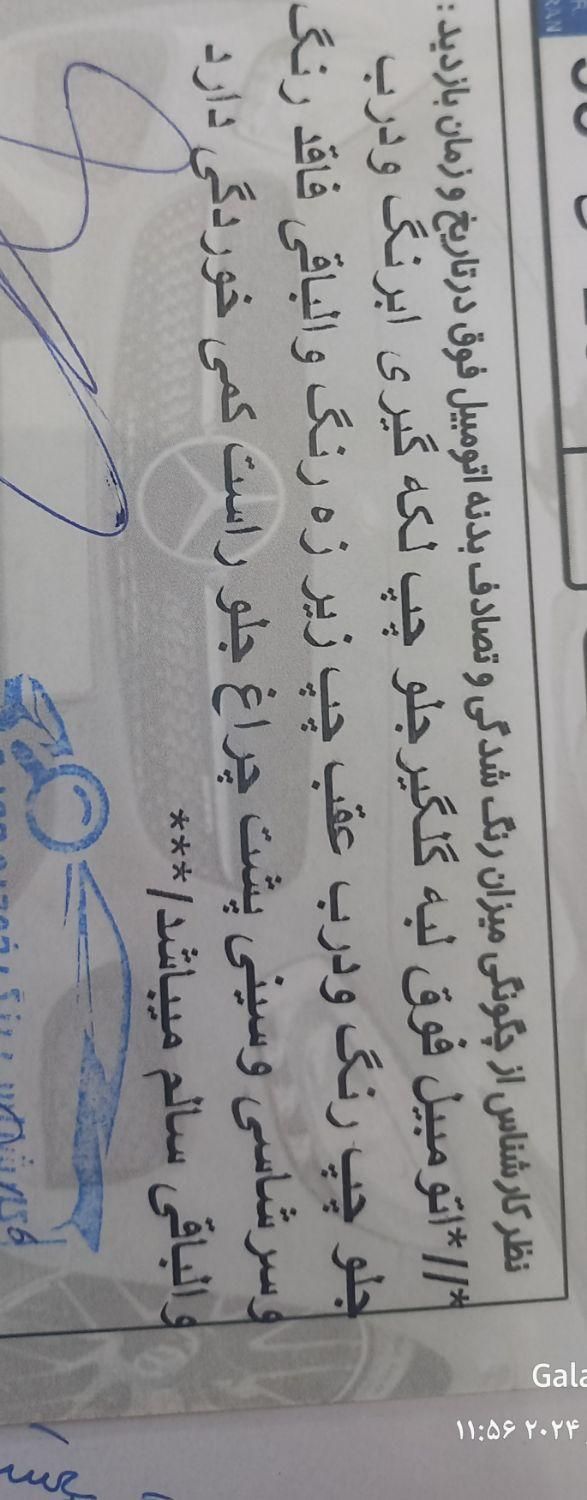 RAN
نظر کارشناس از چگونگی میزان رنگ شدگی و تصادف بدنه اتومبیل فوق در تاریخ و زمان بازدید :
*//*اتومبیل فوق لبه گلگیر جلو چپ لکه گیری ابرنگ ودرب
جلو چپ رنگ ودرب عقب چپ زیر زه رنگ والباقی فاقد رنگ
وسرشاسی وسینی پشت چراغ جلو راست کمی خوردگی دارد
والباقی سالم میباشد/***
Gala
۱۱:۵۶ ۲۰۲۴